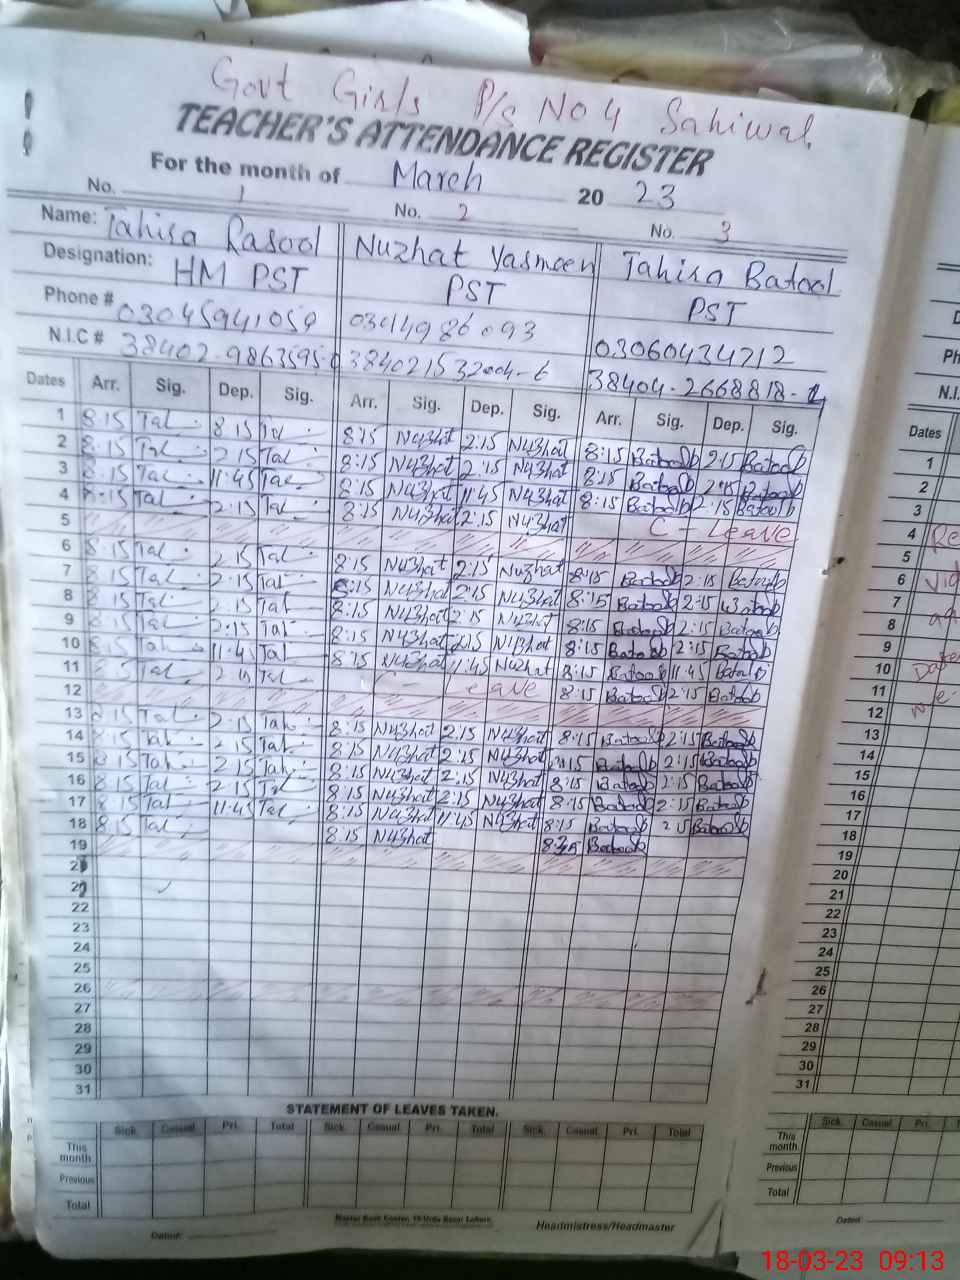 Govt Girls P/s No 4 Sahiwal
TEACHER'S ATTENDANCE REGISTER
For the month of March 20 23
No. 1 No. 2 No. 3
Name: Tahira Rasool Nuzhat Yasmeen Tahira Batool
Designation: HM PST PST PST
Phone # 03045941059 03060434712
N.I.C #
Dates Arr. Sig. Dep. Sig. Arr. Sig. Dep. Sig. Arr. Sig. Dep. Sig.
1 8:15 Tal 8:15 Tal 8:15 Nu3hat 2:15 Nu3hat 8:15 Batoolb 2:15 Batoolb
2 8:15 Tal 2:15 Tal 8:15 Nu3hat 2:15 Nu3hat 8:15 Batoolb 2:15 Batoolb
3 8:15 Tal 11:45 Tal 8:15 Nu3hat 11:45 Nu3hat 8:15 Batoolb 2:15 Batoolb
4 8:15 Tal 2:15 Tal 8:15 Nu3hat 2:15 Nu3hat C - Leave
5
6 8:15 Tal 2:15 Tal 8:15 Nu3hat 2:15 Nuzhat 8:15 Batoolb 2:15 Batoolb
7 8:15 Tal 2:15 Tal 8:15 Nu3hat 2:15 Nu3hat 8:15 Batoolb 2:15
8 8:15 Tal 2:15 Tal 8:15 Nu3hat 2:15 Nu3hat 8:15 Batoolb 2:15 Batoolb
9 8:15 Tal 2:15 Tal 8:15 Nu3hat 2:15 Nu3hat 8:15 Batoolb 2:15 Batoolb
10 8:15 Tal 11:45 Tal 8:15 Nu3hat 11:45 Nuzhat 8:15 Batoolb 11:45 Batoolb
11 8:15 Tal 2:15 Tal C - Leave 8:15 Batoolb 2:15 Batoolb
12
13 8:15 Tal 2:15 Tal 8:15 Nu3hat 2:15 Nu3hat 8:15 Batoolb 2:15 Batoolb
14 8:15 Tal 2:15 Tal 8:15 Nu3hat 2:15 Nu3hat 8:15 Batoolb 2:15 Batoolb
15 8:15 Tal 2:15 Tal 8:15 Nu3hat 2:15 Nu3hat 8:15 Batoolb 2:15 Batoolb
16 8:15 Tal 2:15 Tal 8:15 Nu3hat 2:15 Nu3hat 8:15 Batoolb 2:15 Batoolb
17 8:15 Tal 11:45 Tal 8:15 Nu3hat 11:45 Nu3hat 8:15 Batoolb 2:15 Batoolb
18 8:15 Tal 8:15 Nu3hat Batoolb
19
22
23
24
25
26
27
28
29
30
31
STATEMENT OF LEAVES TAKEN.
Sick. Casual Pri. Total Sick. Casual Pri. Total Sick. Casual Pri. Total
This month
Previous
Total
Dated: Headmistress/Headmaster
N.I.
Dates
1
2
3
4
5
6
7
8
9
10
11
12
13
14
15
16
17
18
19
20
21
22
23
24
25
26
27
28
29
30
31
Sick. Casual Pri.
This month
Previous
Total
Dated:
18-03-23 09:13